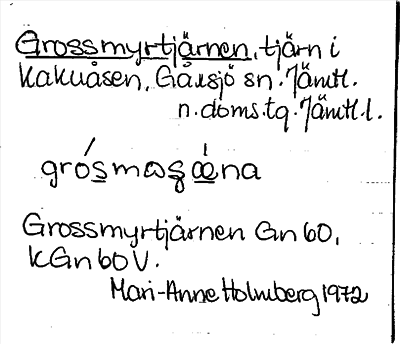 Grossmyrtjärnen, tjärn i
Kakuåsen, Gåxsjö sn. Jämtl.
n. doms.tg. Jämtl.l.
Grossmyrtjärnen Gn 60,
KGn 60 V.
Mari-Anne Holmberg 1972